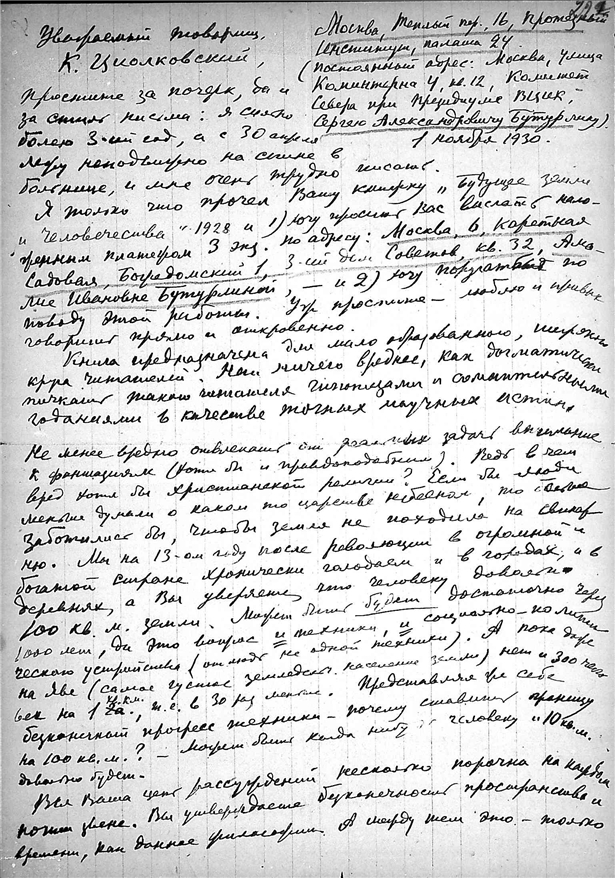 Уважаемый товарищ,
К. Циолковский,
Москва, Теплый пер., 16, Тропический
институт, палата 24.
(постоянный адрес: Москва, улица
Коминтерна 4, кв. 12, Комитет
Севера при Президиуме ВЦИК,
Сергею Александровичу Бутурлину)
1 ноября 1930.
простите за почерк, да и
за письма: я сильно
болею 3-ий год, а с 30 апреля
лежу неподвижно на спине в
больнице, и мне очень трудно писать.
Я только что прочел Вашу книжку „Будущее земли
и человечества" 1928 и 1) хочу просить Вас выслать нало-
женным платежом 3 экз. по адресу: Москва, 6, Каретная
Садовая, 3-ий дом Советов, кв. 32, Ама-
лие Ивановне Бутурлиной, — и 2) хочу по
поводу этой работы. Уж простите — люблю и привык
говорить прямо и откровенно.
Книга предназначена для мало образованного, широкого
круга читателей. Нет ничего вреднее, как догматически
пичкать такого читателя гипотезами и сомнительными
гаданиями в качестве точных научных истин.
Не менее вредно отвлекать от реальных задач внимание
к фантазиям (хотя бы и правдоподобным). Ведь в чем
вред хотя бы христианской религии? Если бы люди
меньше думали о каком то царстве небесном, то больше
заботились бы, чтобы земля не походила на свинар
ню. Мы на 13-ом году после революции в огромной и
богатой стране хронически голодаем и в городах, и в
деревнях, а Вы уверяете, что человеку довольно
100 кв. м. земли. Может быть будет достаточно через
1000 лет, да это вопрос и техники, и социально-полити-
ческого устройства (отнюдь не одной техники). А пока даже
на Яве (самое густое земледельч. население земли) нет и 300 чело
век на 1 кв. км., т. е. в 30 раз меньше. Представляя же себе
бесконечный прогресс техники — почему ставить границу
на 100 кв. м.? — Может быть когда нибудь человеку и 10 кв. м.
довольно будет.
Вся Ваша цепь рассуждений несколько порочна на каждом
почти звене. Вы утверждаете бесконечность пространства и
времени, как данное философии. А между тем это — только